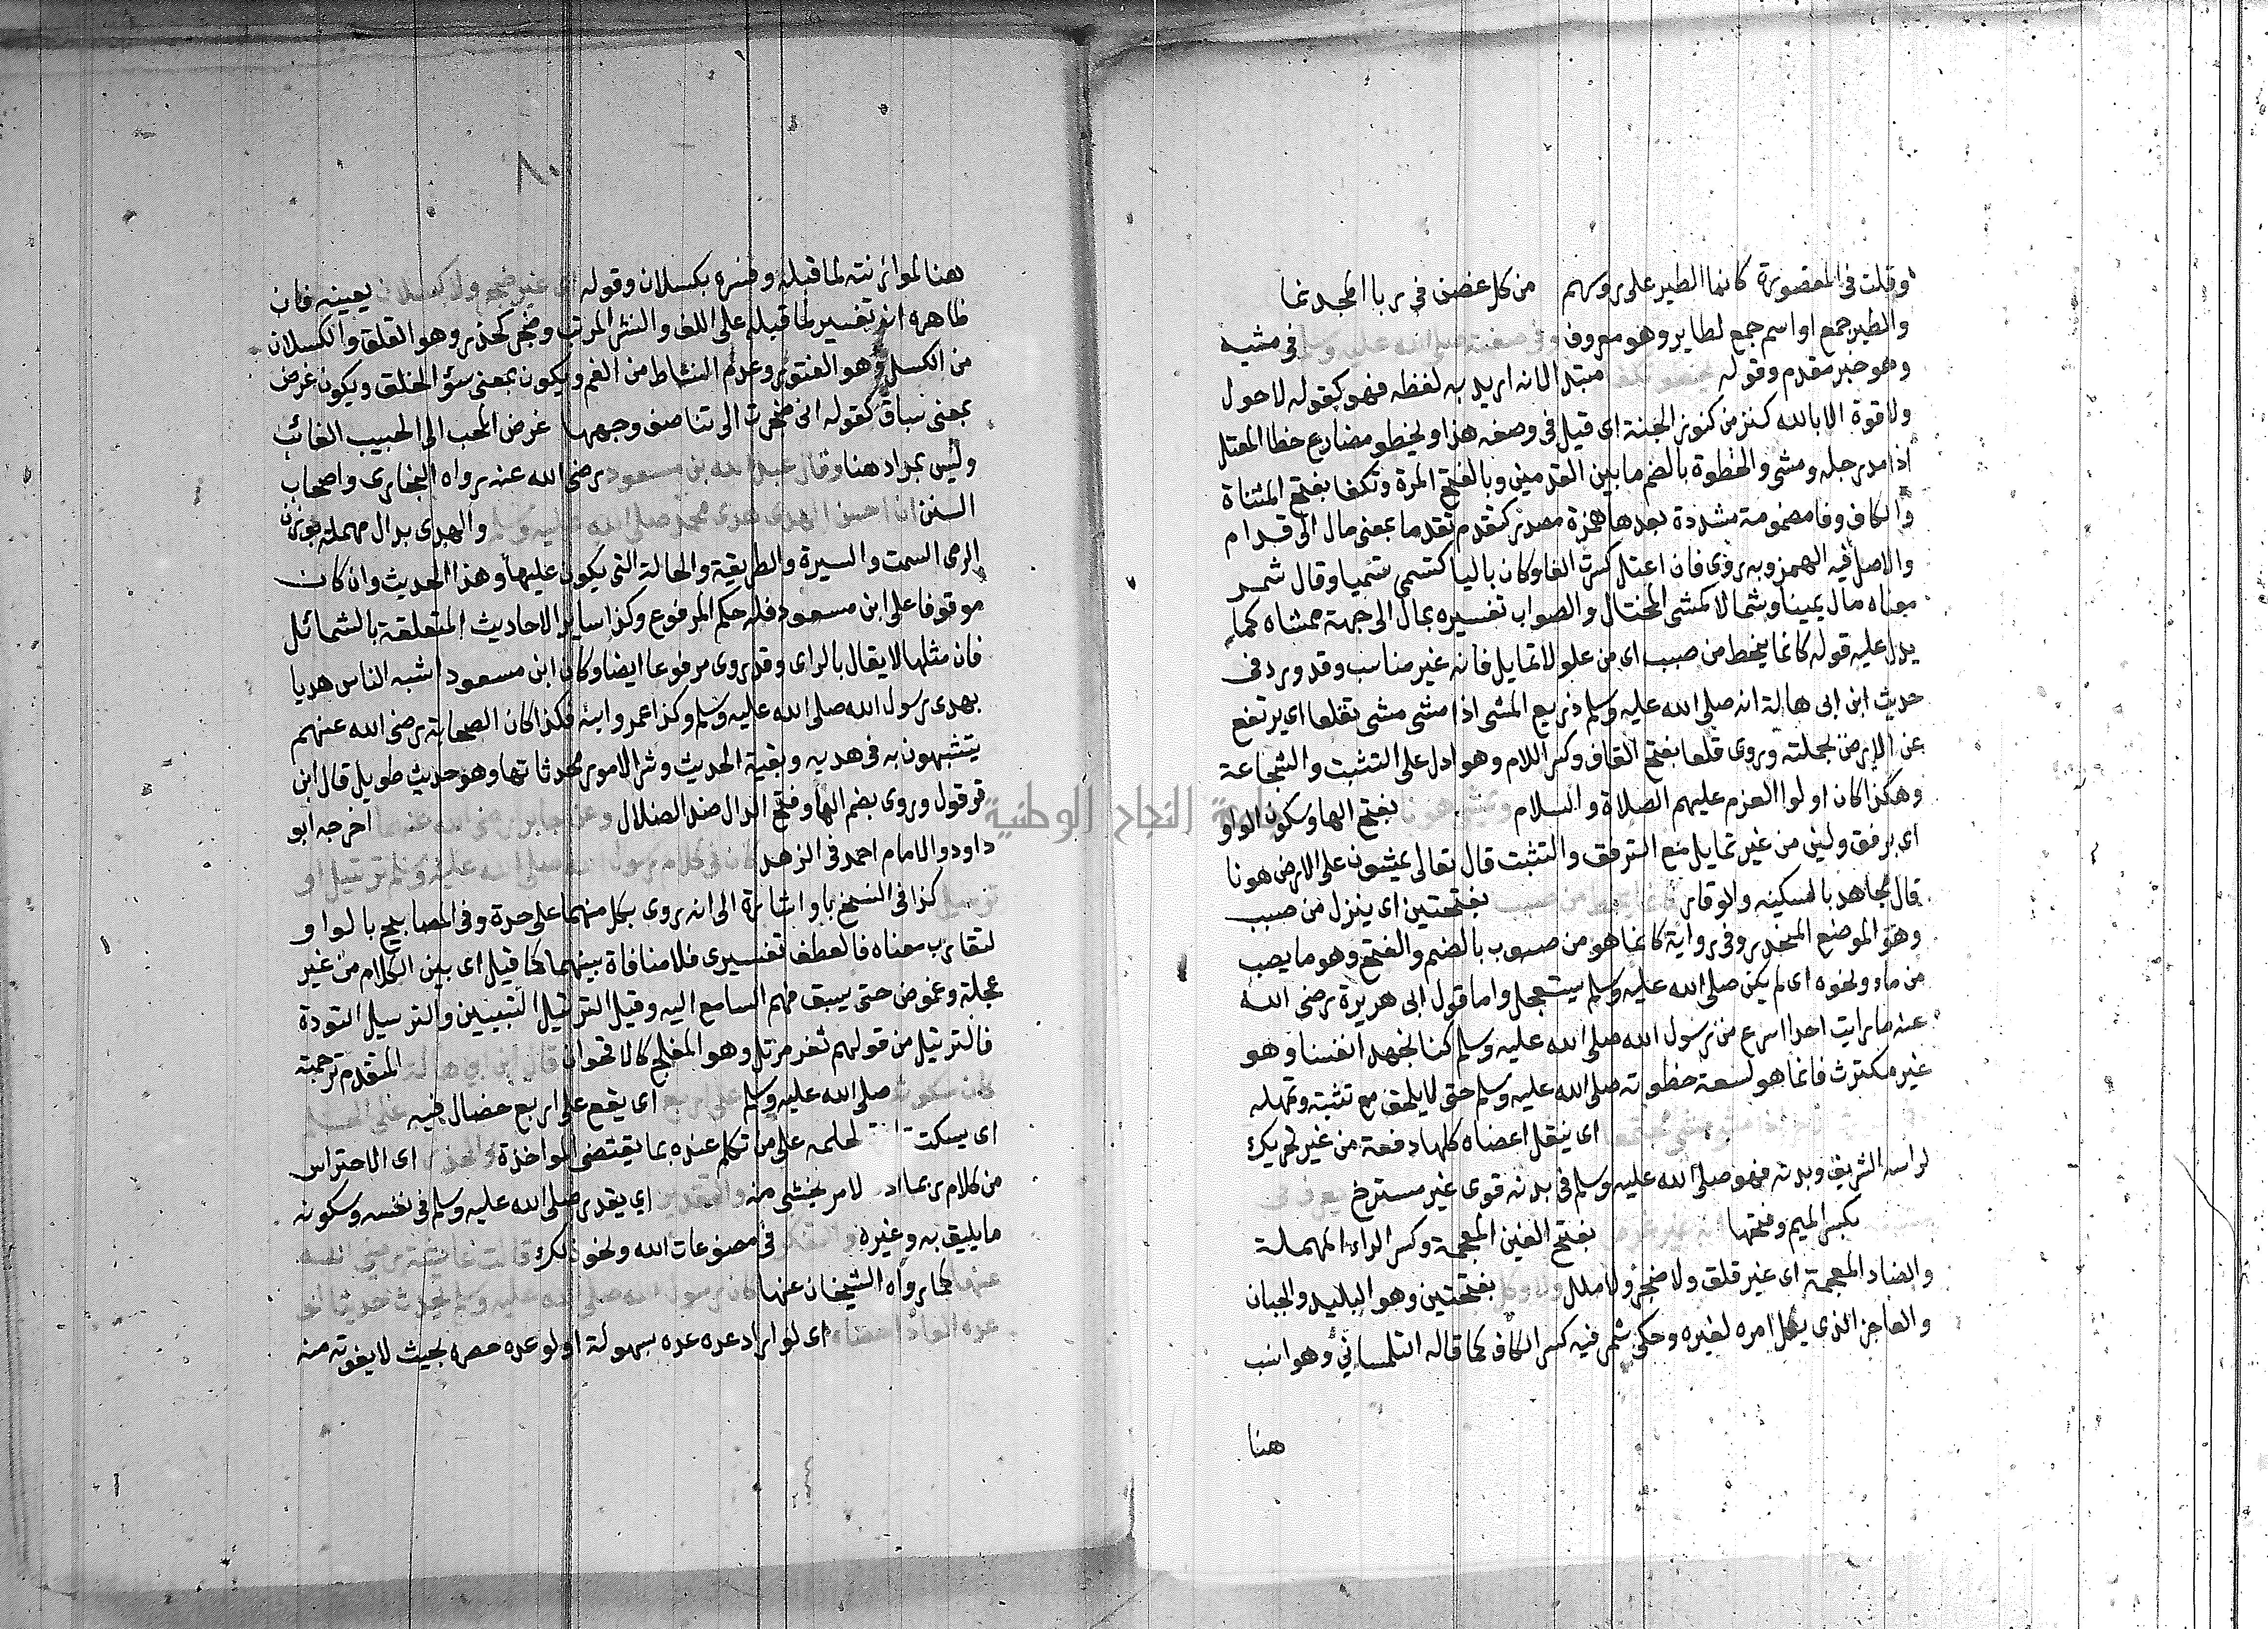 وقلت في المقصورة كانما الطير على روسهم من كل غصن في ربا المجد نما
والطير جمع او اسم جمع لطاير وهو معروف وفي صفته صلى الله عليه وسلم في مشيه
وهو خبر مقدم وقوله يخطو تكفا مبتدا لانه اريد به لفظه فهو كقوله لا حول
ولا قوة الا بالله كنز من كنوز الجنة اى قيل في وصفه هذا ويخطو مضارع خطا المعتل
اذا مد رجله ومشى والخطوة بالضم ما بين القدمين وبالفتح المرة وتكفا بفتح المثناة
والكاف وفا مضمومة مشددة بعدها همزة مصدر كتقدم تقدما بمعنى مال الى قدام
والاصل فيه الهمز وبه روى فان اعتل كسرت الفا وكان باليا كتسمى تسميا وقال شمر
معناه مال يمينا وشمالا كمشى المختال والصواب تفسيره بمال الى جهة ممشاه كما
يدل عليه قوله كانما ينحط من صبب اى من علو لا تمايل فانه غير مناسب وقد ورد في
حديث ابن ابى هالة انه صلى الله عليه وسلم ذريع المشى اذا مشى مشى تقلعا اى يرتفع
عن الارض بجملته وروى قلعا بفتح القاف وكسر اللام وهو ادل على التثبت والشجاعة
وهكذا كان اولوا العزم عليهم الصلاة والسلام ويمشى هونا بفتح الها وسكون الواو
اى برفق ولين من غير تمايل مع الترفق والتثبت قال تعالى يمشون على الارض هونا
قال مجاهد بالسكينه والوقار كانما ينحط من صبب بفتحتين اى ينزل من صبب
وهو الموضع المنحدر وفي رواية كانما هو من صبوب بالضم والفتح وهو ما يصب
من ماء ونحوه اى لم يكن صلى الله عليه وسلم يستعجل واما قول ابى هريرة رضى الله
عنه ما رايت احدا اسرع من رسول الله صلى الله عليه وسلم كنا لنجهد انفسنا وهو
غير مكترث فانما هو لسعة خطوته صلى الله عليه وسلم حتى لا يلحق مع تثبته وتمهله
اى ينقل اعضاه كلها دفعة من غير تحريك
لراسه الشريف وبدنه فهو صلى الله عليه وسلم في بدنه قوى غير مسترخ يعرف في
مشيته بكسر الميم وفتحها انه غير غرض بفتح الغين المعجمة وكسر الراء المهملة
والضاد المعجمة اى غير قلق ولا ضجر ولا ملل ولا وكل بفتحتين وهو البليد والجبان
والعاجز الذى يكل امره لغيره وحكى شمر فيه كسر الكاف كما قاله التلمسانى وهو انسب
هنا
٨٠
هنا لموازنته لما قبله وفسره بكسلان وقوله اى غير ضجر ولا كسلان يعينه فان
ظاهره انه تفسير لما قبله على اللف والنشر المرتب وضجر كحذر وهو القلق والكسلان
من الكسل وهو الفتور وعدم النشاط من الغم ويكون بمعنى سؤ الخلق ويكون غرض
بمعنى سباق كقوله انى ضجرت الى تناصف وجهها غرض المحب الى الحبيب الغائب
وليس بمراد هنا وقال عبد الله بن مسعود رضى الله عنه رواه البخارى واصحاب
السنن ان احسن الهدى هدى محمد صلى الله عليه وسلم والهدى بدال مهملة بوزن
الرمى السمت والسيرة والطريقة والحالة التى يكون عليها وهذا الحديث وان كان
موقوفا على ابن مسعود فله حكم المرفوع وكذا ساير الاحاديث المتعلقة بالشمائل
فان مثلها لا يقال بالراى وقد روى مرفوعا ايضا وكان ابن مسعود اشبه الناس هديا
بهدى رسول الله صلى الله عليه وسلم وكذا عمر وابنه فكذا كان الصحابة رضى الله عنهم
يتشبهون به في هديه وبقية الحديث وشر الامور محدثاتها وهو حديث طويل قال ابن
قرقول وروى بضم الها وفتح الدال ضد الضلال وعن جابر رضى الله عنهما اخرجه ابو
داود والامام احمد في الزهد كان في كلام رسول الله صلى الله عليه وسلم ترتيل او
ترسيل كذا في النسخ باو اشارة الى انه روى بكل منهما على حدة وفي المصابيح بالواو
لتقارب معناه فالعطف تفسيرى فلا منافاة بينهما كما قيل اى بين الكلام من غير
عجلة وغموض حتى يسبق فهم السامع اليه وقيل الترتيل التبيين والترسيل التودة
فالترتيل من قولهم ثغر مرتل وهو المفلج كالاقحوان قال ابن ابي هالة المتقدم ترجمته
كان سكوته صلى الله عليه وسلم على اربع اى يقع على اربع خصال فيه على الحلم
اى يسكت لحلمه على من تكلم عنده بما يقتضى المواخذة والحذر اى الاحتراس
من كلام ربما اد لامر يخشى منه والتقدير اى يقدر صلى الله عليه وسلم في نفسه وسكوته
ما يليق به وغيره والتفكر في مصنوعات الله ونحو ذلك قالت عايشة رضى الله
عنها كما رواه الشيخان عنها كان رسول الله صلى الله عليه وسلم يحدث حديثا لو
عده العاد احصاه اى لو اراد عده عده سهولة او لو عده حصره بحيث لا يفوته منه
جامعة النجاح الوطنية